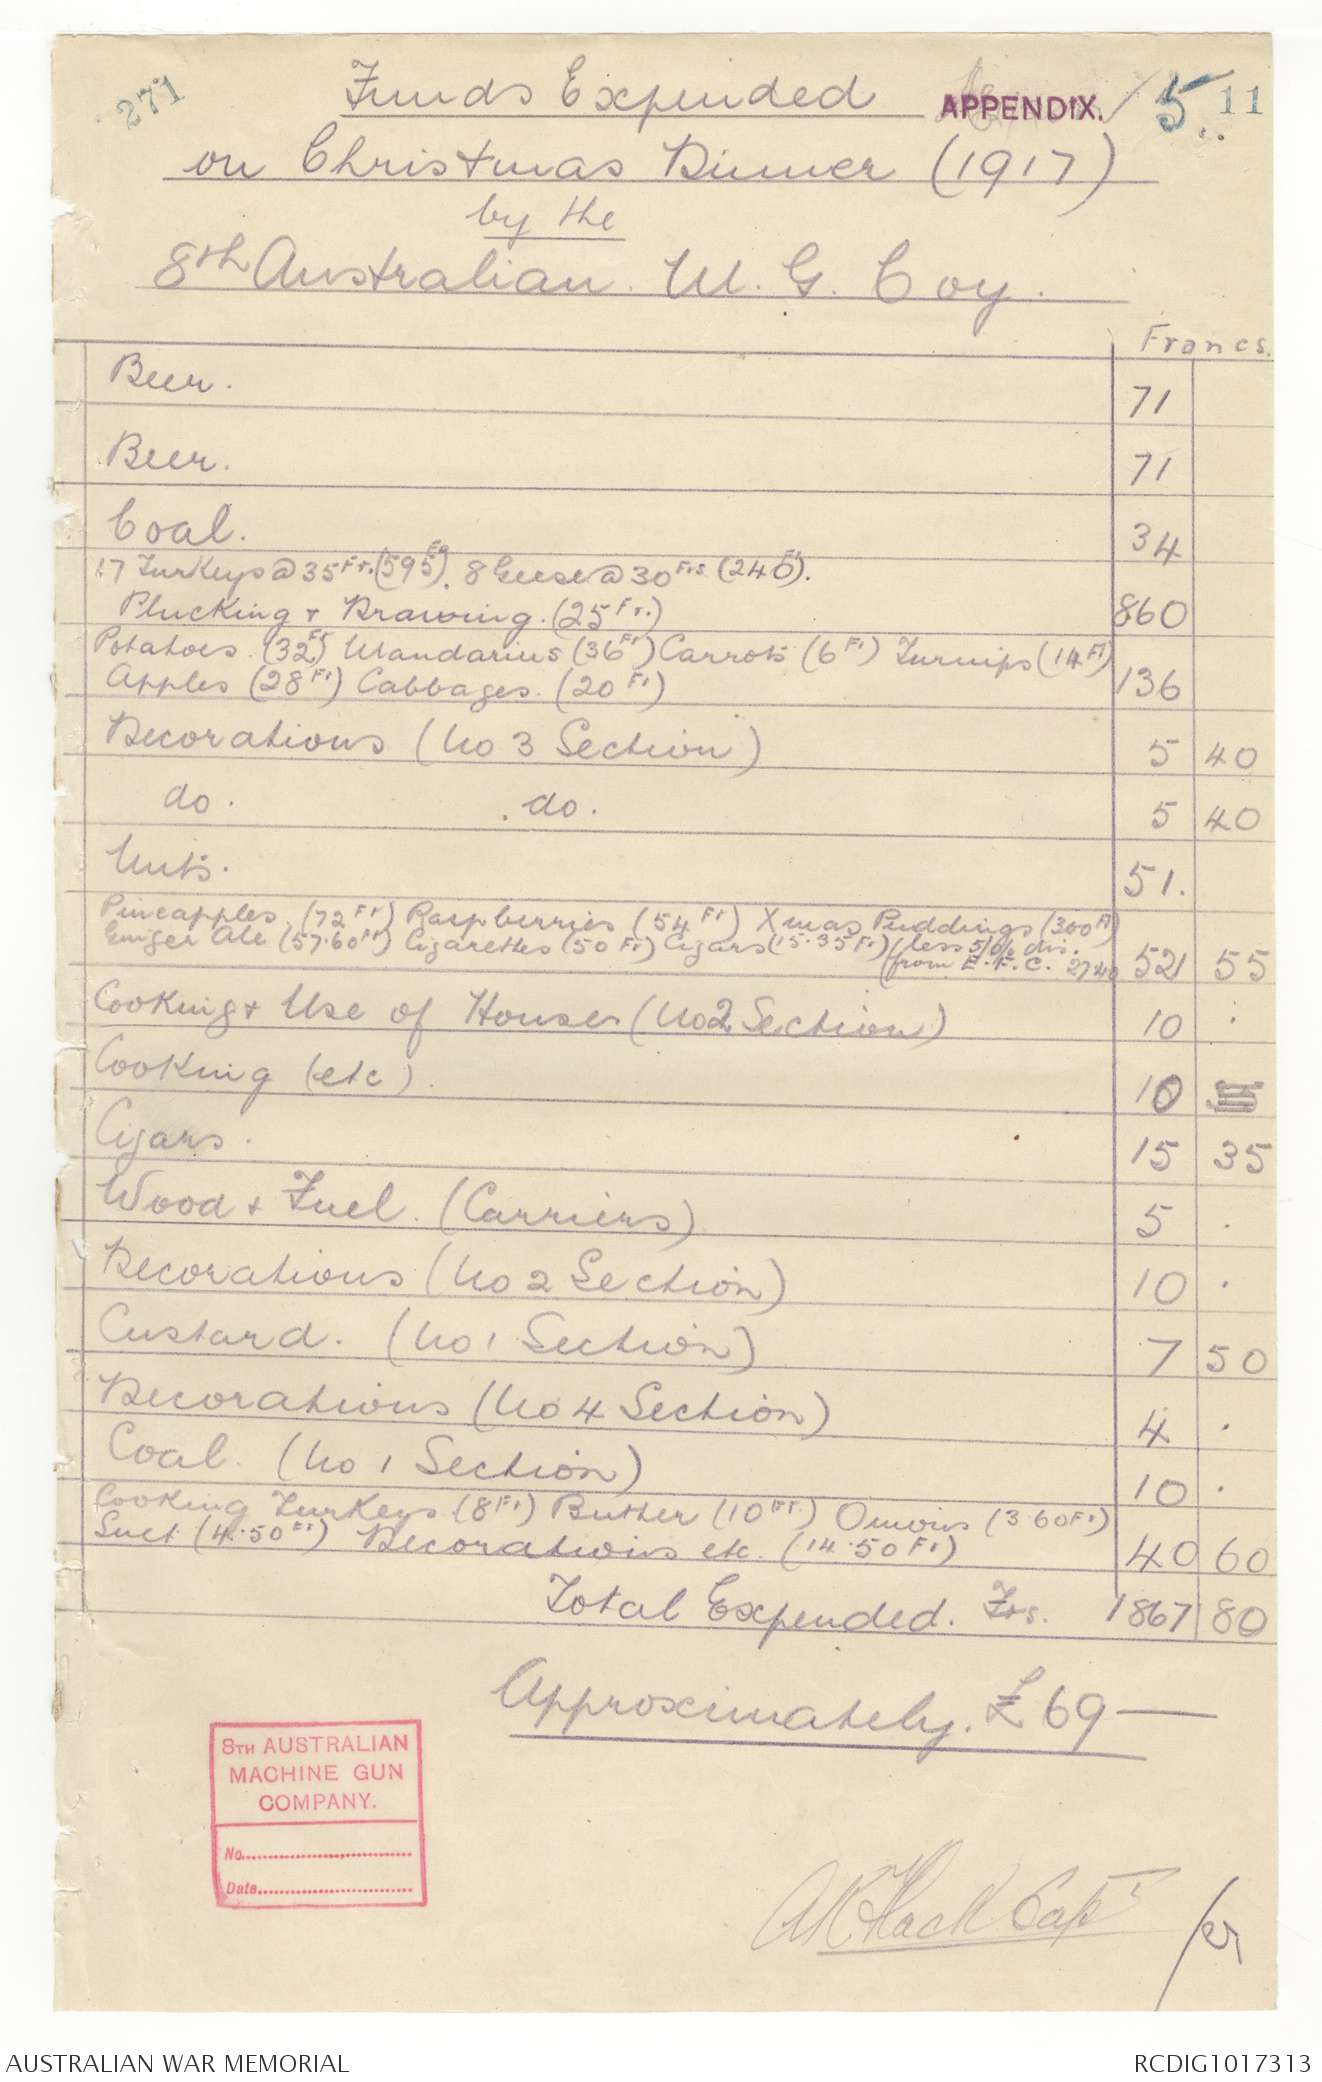 271
Funds Expended APPENDIX. 5 11
on Christmas Dinner (1917)
by the
8th Australian. M. G. Coy.
Francs.
Beer. 71
Beer. 71
Coal. 34
17 Turkeys @ 35 Fr. (595 Fr). 8 Geese @ 30 Frs (240 Fr).
Plucking & Drawing. (25 Fr.) 860
Potatoes. (32 Fr) Mandarins (36 Fr) Carrots (6 Fr) Turnips (14 Fr)
Apples (28 Fr) Cabbages. (20 Fr) 136
Decorations (No 3 Section) 5 40
do. do. 5 40
Nuts. 51.
Pineapples. (72 Fr) Raspberries (54 Fr) Xmas Puddings (300 Fr)
Ginger Ale (57.60 Fr) Cigarettes (50 Fr) Cigars (15.35 Fr) (less 5% dis.
from E.F.C. 27.40 521 55
Cooking & Use of Houses (No 2 Section) 10 .
Cooking (etc). 10
Cigars. 15 35
Wood & Fuel. (Carriers) 5 .
Decorations (No 2 Section) 10 .
Custard. (No 1 Section) 7 50
Decorations (No 4 Section) 4 .
Coal. (No 1 Section) 10 .
Cooking Turkeys (8 Fr) Butter (10 Fr.) Onions (3.60 Fr)
Suet (4.50 Fr) Decorations etc. (14.50 Fr) 40 60
Total Expended. Frs. 1867 80
Approximately. £69 —
8TH AUSTRALIAN
MACHINE GUN
COMPANY.
No.
Date
Hack Capt
AUSTRALIAN WAR MEMORIAL RCDIG1017313